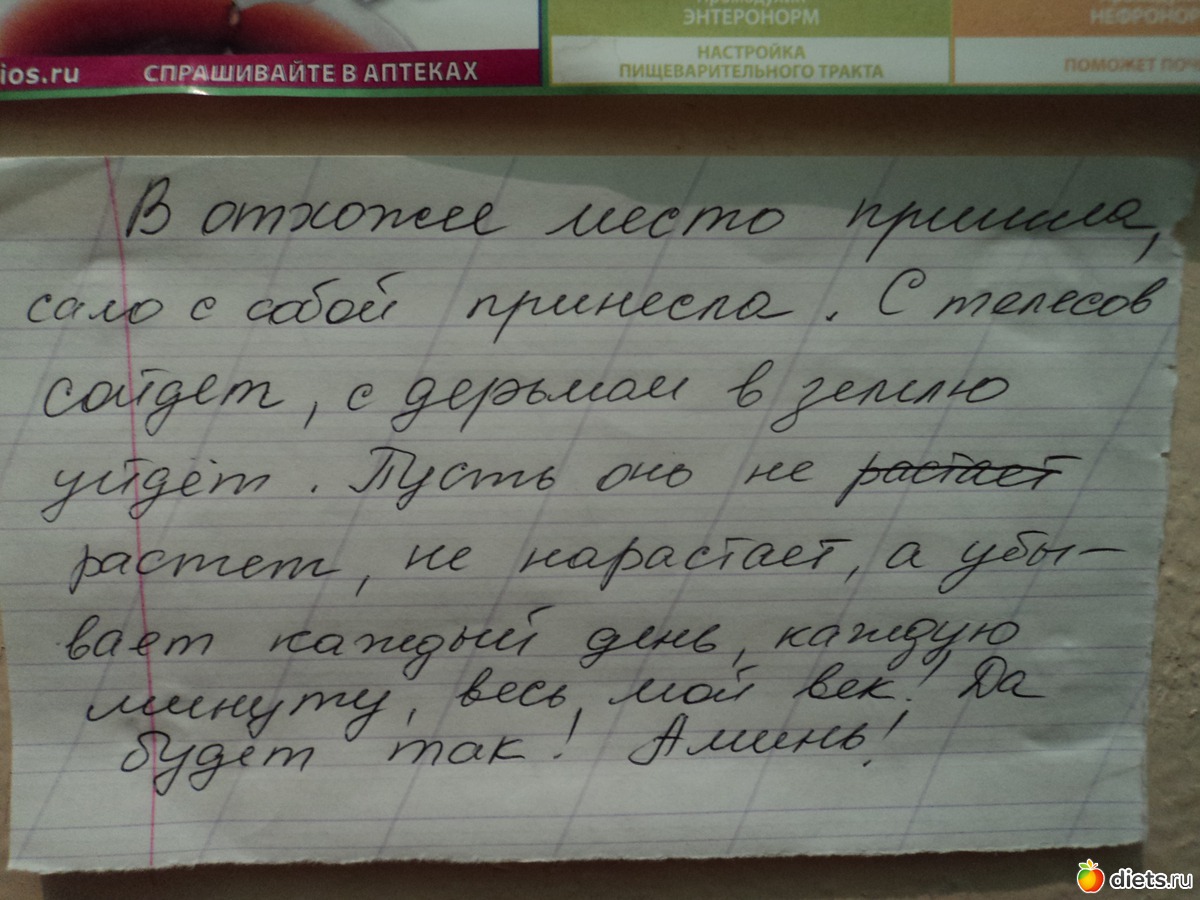 ЭНТЕРОНОРМ
НАСТРОЙКА
ПИЩЕВАРИТЕЛЬНОГО ТРАКТА
ios.ru
СПРАШИВАЙТЕ В АПТЕКАХ
В отхожее место пришла,
сало с собой принесла. С телесов
сойдет, с дерьмом в землю
уйдёт. Пусть оно не растает
растет, не нарастает, а убы-
вает каждый день, каждую
минуту, весь мой век! Да
будет так! Аминь!
diets.ru